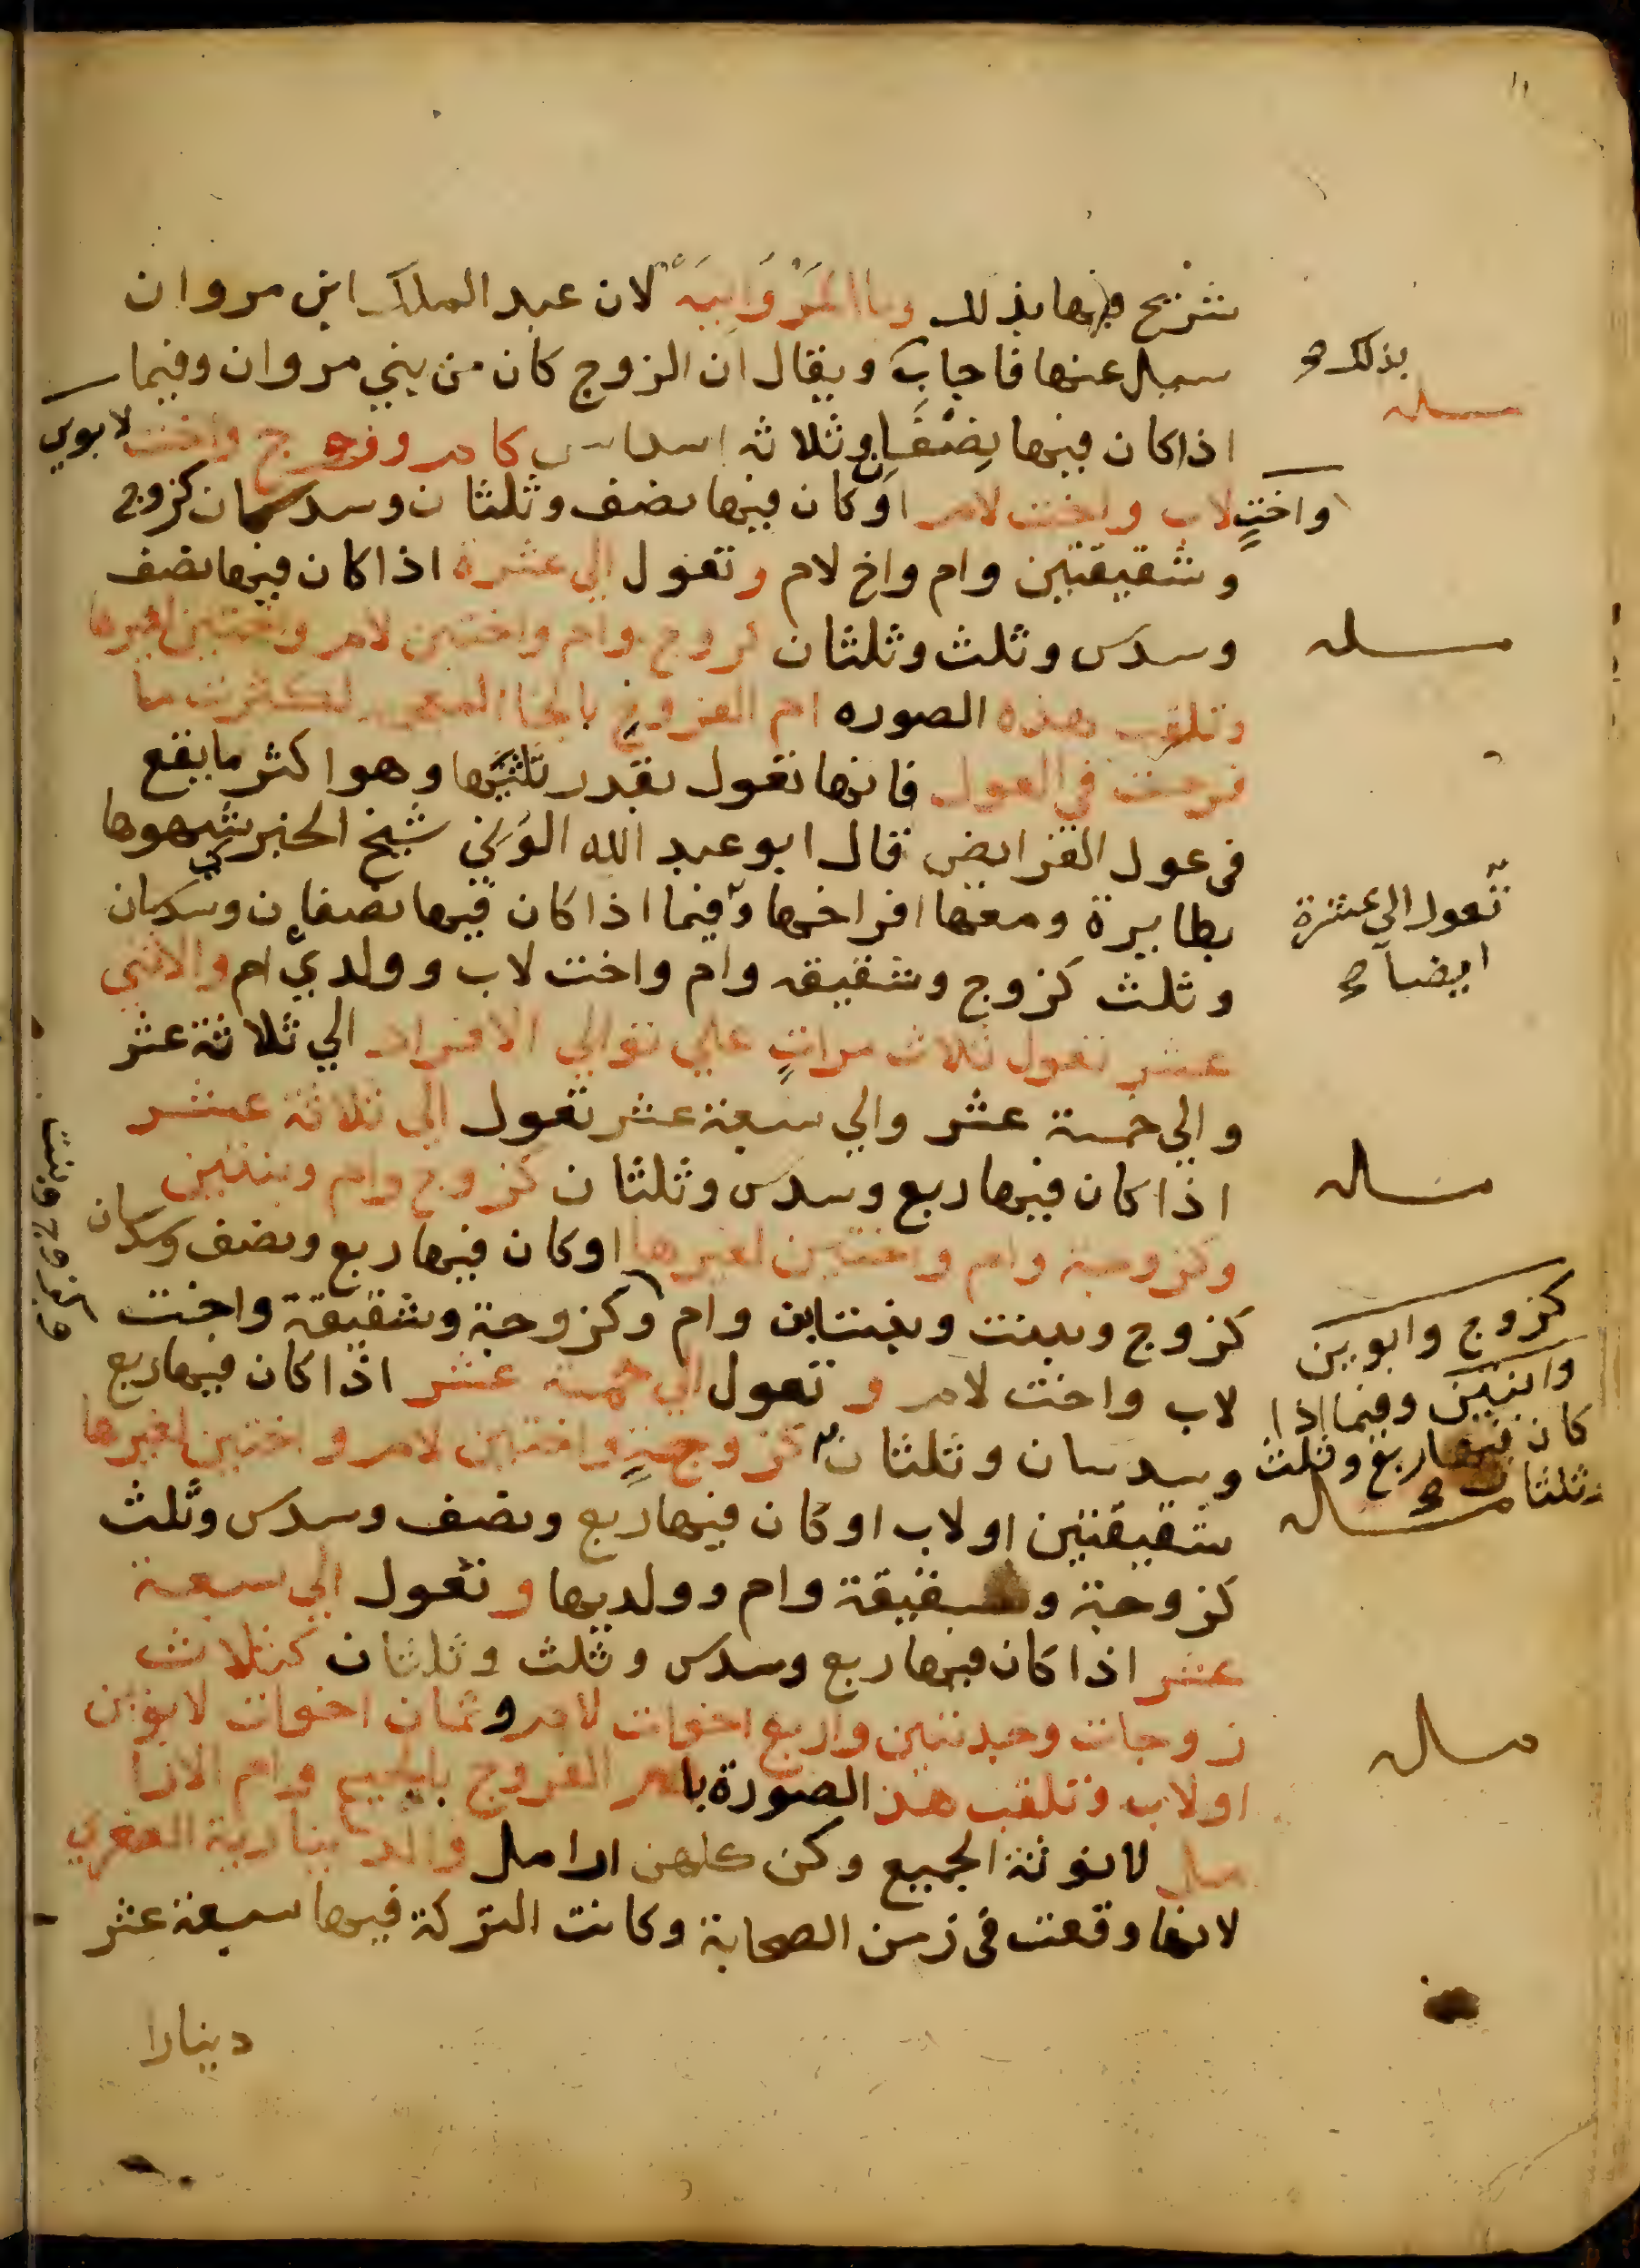 شريح فيها بذلك وبا المَرْوَانِيَة لان عبد الملك ابن مروان
سيل عنها فاجاب ويقال ان الزوج كان من بني مروان وفيما
اذا كان فيها نِصْفَان وثلاثة اسداس كام وزوج واخت لابوين
واختٍ لاب واخت لام او كان فيها نصف وثلثان وسدسان كزوج
وشقيقتين وام واخ لام وتعول الي عشرة اذا كان فيها نصف
وسدس وثلث وثلثان كزوج وام واختين لام واختين لغيرها
وتلقب هذه الصوره ام الفروخ بالخا المعجمه لكثرت ما
فرخت في العول فانها تعول بقدر ثلثيها وهو اكثر ما يقع
في عول الفرايض قال ابو عبد الله الوني شيخ الخبري شبهوها
بطايرة ومعها افراخها وفيما اذا كان فيها نصفان وسدسان
وثلث كزوج وشقيقه وام واخت لاب وولدي ام والاثني
عشر تعول ثلاث مراتٍ علي توالي الافراد الي ثلاثة عشر
والي خمسة عشر والي سبعة عشر تعول الي ثلاثة عشر
اذا كان فيها ربع وسدس وثلثان كزوج وام وبنتين
وكزوجة وام واختين لغيرها او كان فيها ربع ونصف وسدسان
كزوج وبنت وبنت ابن وام وكزوجة وشقيقة واخت
لاب واخت لام وتعول الي خمسة عشر اذا كان فيها ربع
وسدسان وثلثان كزوجةٍ واختين لام واختين لغيرها
شقيقتين او لاب او كان فيها ربع ونصف وسدس وثلث
كزوجة وشقيقة وام وولديها وتعول الي سبعة
عشر اذا كان فيها ربع وسدس وثلث وثلثان كثلاث
زوجات وجدتين واربع اخوات لام وثمان اخوات لابوين
او لاب وتلقب هذ الصورة بام الفروج بالجيم وام الارا
مل لانوثة الجميع وكن كلهن ارامل والدينارية الصغري
لانها وقعت في زمن الصحابة وكانت التركة فيها سبعة عشر
دينارا
بذلك
مسله
مسله
تعول الي عشرة
ايضا
مساله
كزوج وابوين
وابنتين وفيما اذا
كان فيها ربع وثلث
وثلثان
مساله
مساله